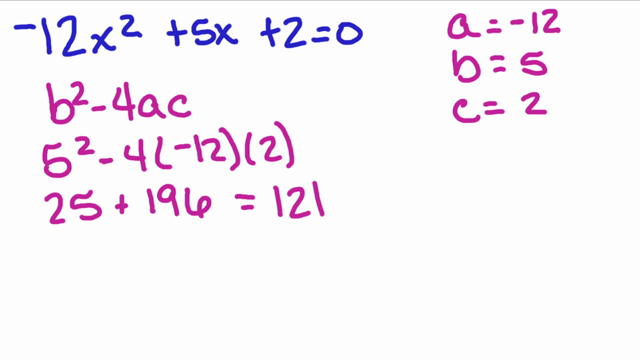 -12x² +5x +2=0
a=-12
b=5
c=2
b²-4ac
5²-4(-12)(2)
25+196=121